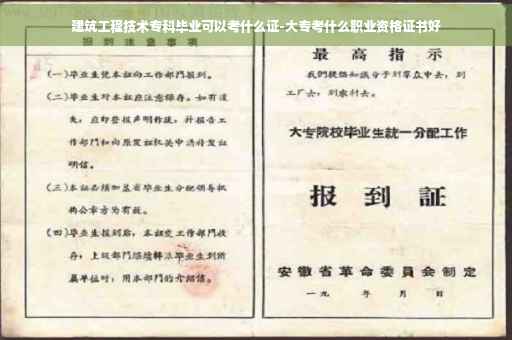 建筑工程技术专科毕业可以考什么证-大专考什么职业资格证书好
报到注意事项
(一)毕业生凭本证向工作部门报到。
(二)毕业生对本证应注意保存。如有遗
失,应即登报声明作废,并报告工
作部门和向原发证机关申请补发证
明信。
(三)本证必须加盖省毕业生分配领导机
构公章方为有效。
(四)毕业生报到后,本证交工作部门收
存;上级部门
毕业生到所
属单位时,用本部门的介绍信。
最高指示
我们提倡知识分子到羣众中去,到
工厂去,到农村去。
大专院校毕业生统一分配工作
报到证
安徽省革命委员会制定
一九 年 月 日